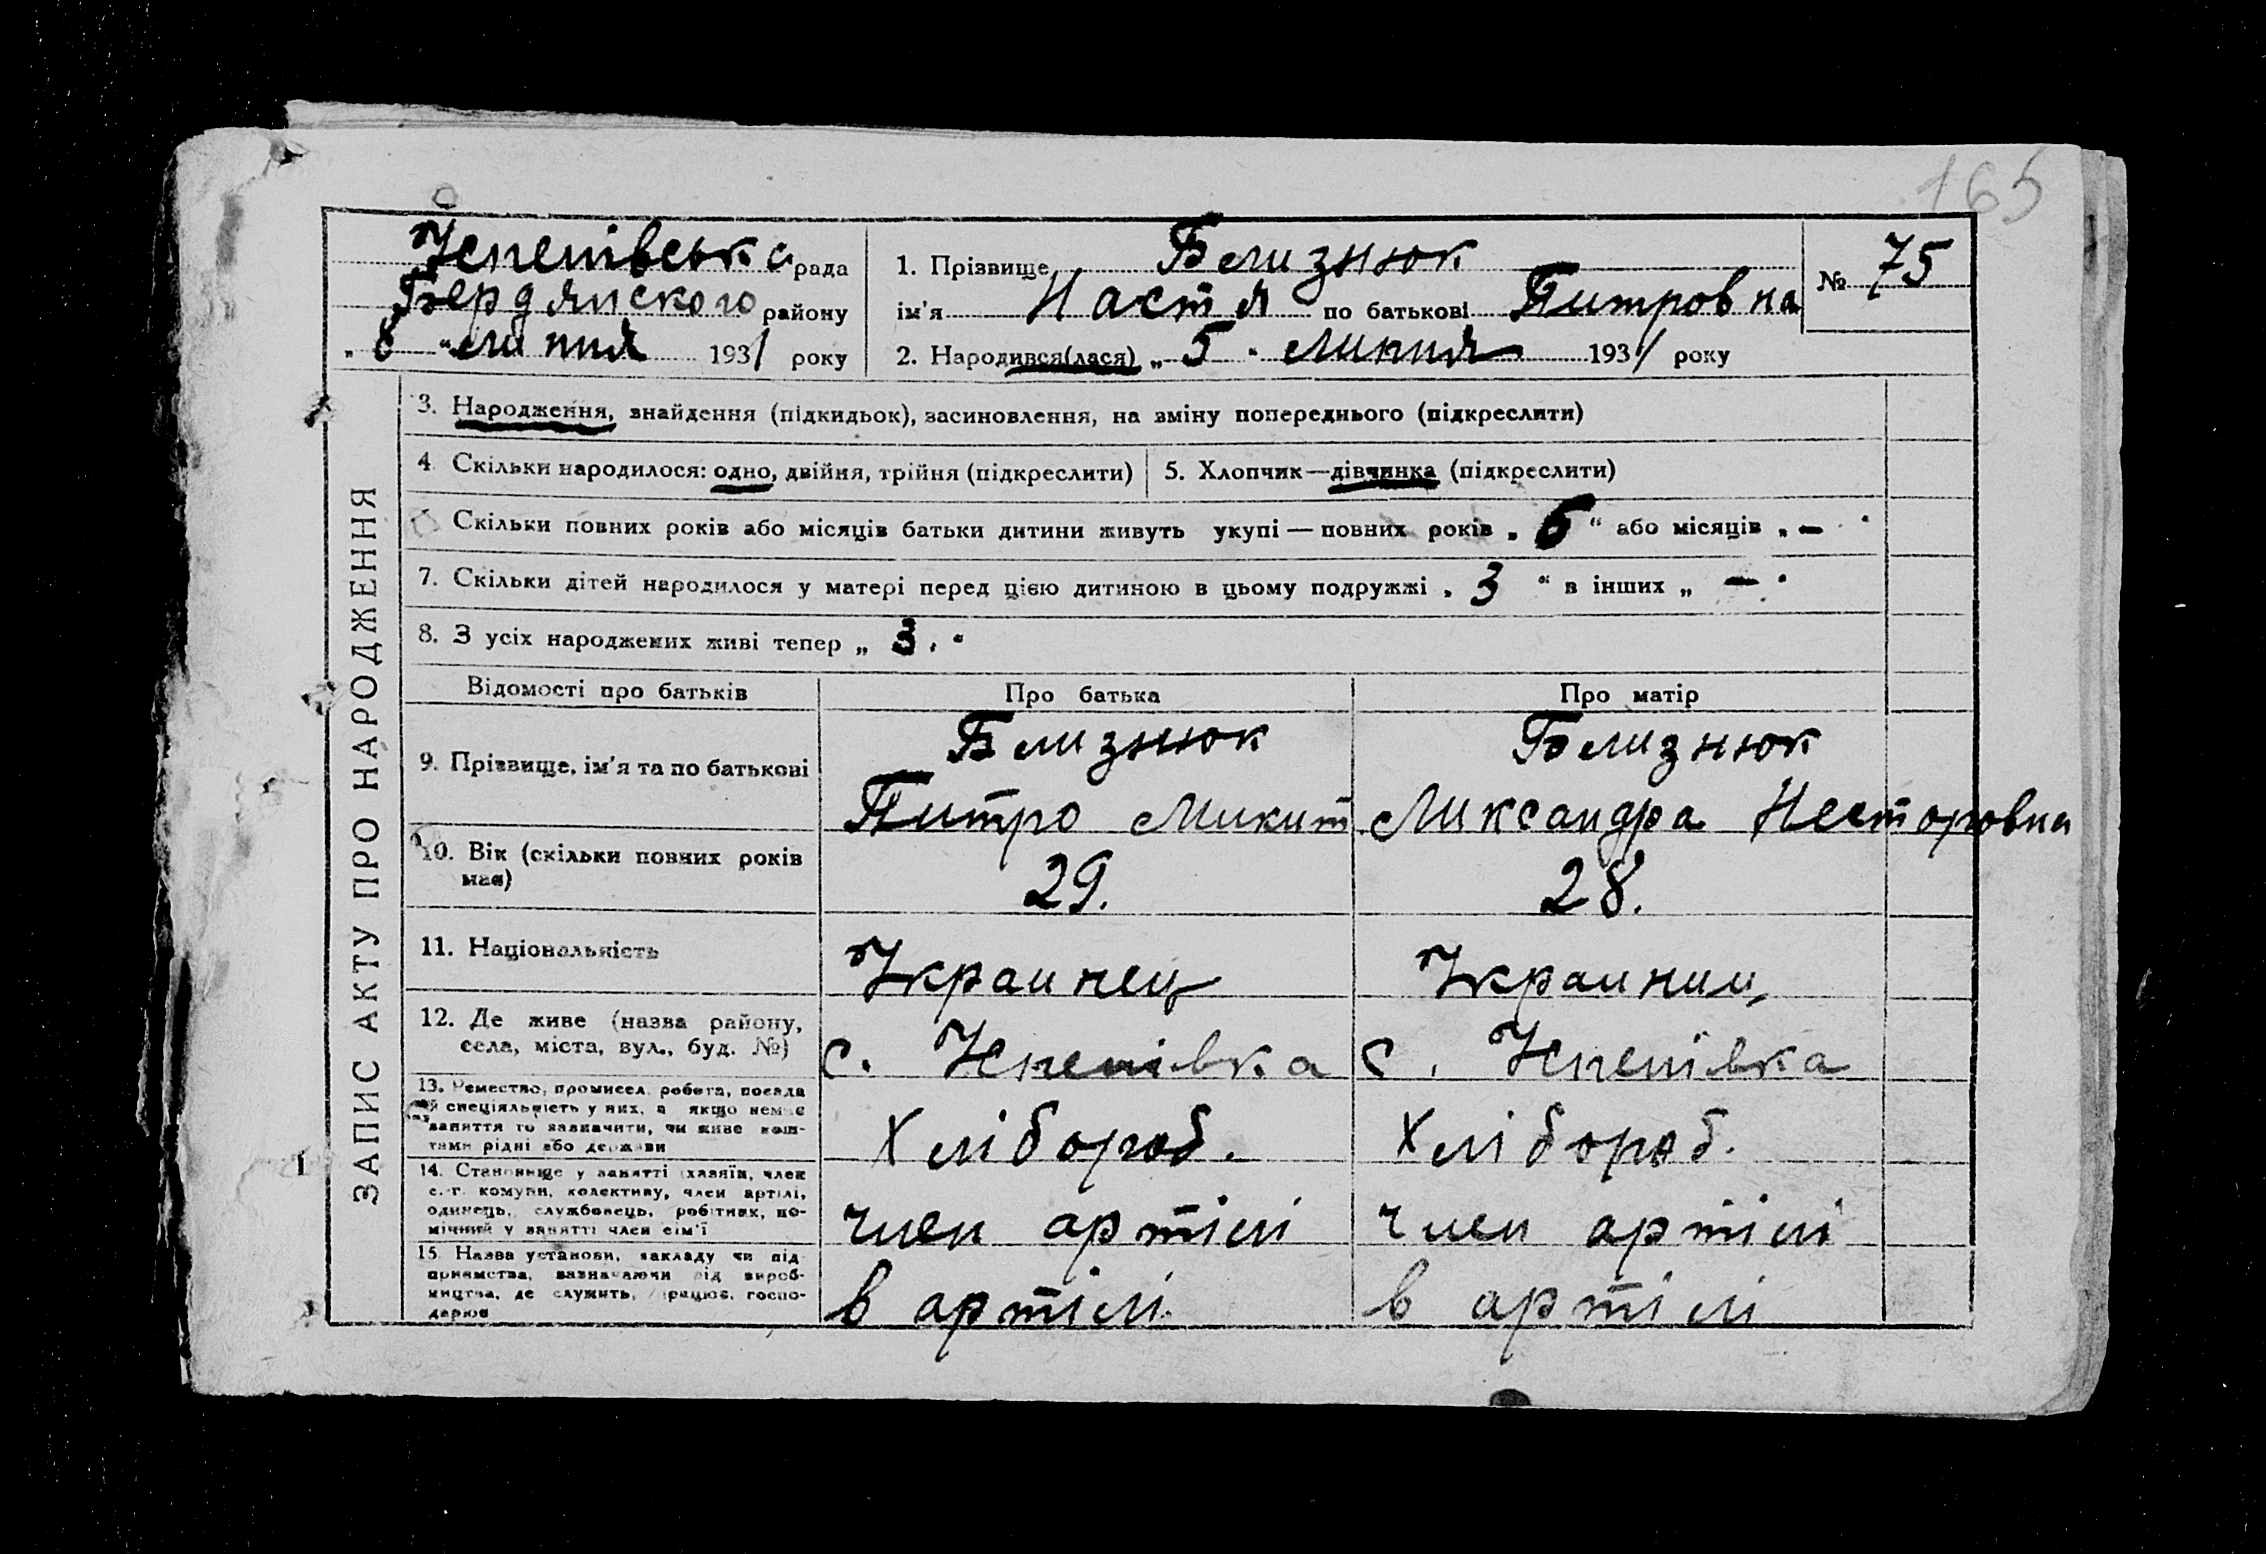 165
Успенівська рада
Бердянского району
„ 8 “ липня 1931 року
1. Прізвище Близнюк
ім'я Настя по батькові Питровна
№ 75
2. Народився(лася) „ 5 “ липня 1931 року
ЗАПИС АКТУ ПРО НАРОДЖЕННЯ
3. Народження, знайдення (підкидьок), засиновлення, на зміну попереднього (підкреслити)
4. Скільки народилося: одно, двійня, трійня (підкреслити) 5. Хлопчик—дівчинка (підкреслити)
Скільки повних років або місяців батьки дитини живуть укупі — повних років „ 6 “ або місяців „ — “
7. Скільки дітей народилося у матері перед цією дитиною в цьому подружжі „ 3 “ в інших „ — “
8. З усіх народжених живі тепер „ 3. “
Відомості про батьків Про батька Про матір
9. Прізвище, ім'я та по батькові
Близнюк
Питро Микит
Близнюк
Ликсандра Несторовна
10. Вік (скільки повних років
має)
29.
28.
11. Національність
Украинец
Украиниц
12. Де живе (назва району,
села, міста, вул., буд. №)
с. Успенівка
с. Успенівка
13. Ремество, промисел, робота, посада
й спеціяльність у них, а якщо немає
заняття то зазначити, чи живе кош-
тами рідні або держави
Хлібороб.
Хлібороб.
14. Становище у занятті (хазяїн, член
с.-г. комуни, колективу, член артілі,
одинець, службовець, робітник, по-
мічний у занятті член сім'ї
член артілі
член артілі
15. Назва установи, закладу чи під
приємства, зазначаючи від вироб-
ництва, де служить, працює, госпо-
дарює
в артілі.
в артілі